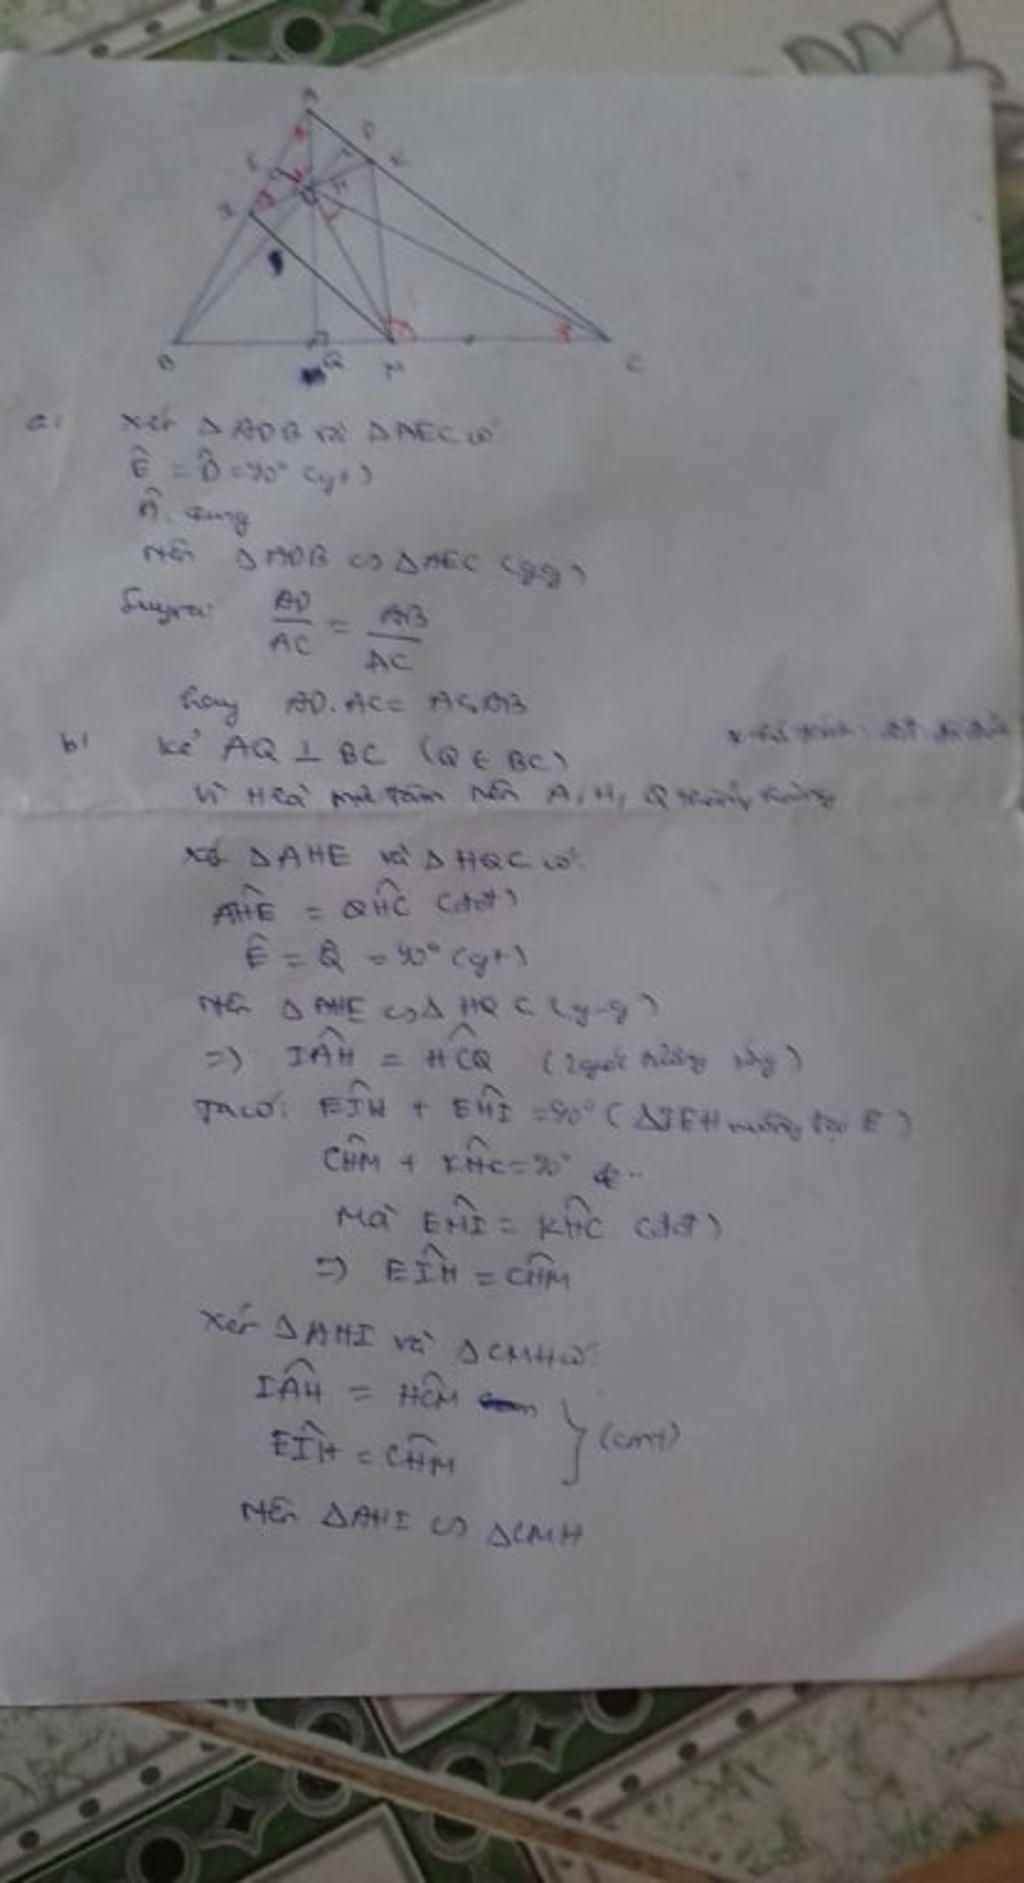 A
D
E
K
H
I
B
Q
M
C
a,
Xét ΔADB và ΔAEC có
Ê = D̂ = 90° (gt)
Â chung
Nên ΔADB ∽ ΔAEC (gg)
Suy ra: AD/AC = AB/AC
hay AD.AC = AE.AB
b,
Kẻ AQ ⊥ BC (Q ∈ BC)
Vì H là trực tâm nên A, H, Q thẳng hàng
Xét ΔAHE và ΔHQC có:
AĤE = QĤC (đđ)
Ê = Q̂ = 90° (gt)
Nên ΔAHE ∽ Δ HQC (g-g)
=> IÂH = HĈQ (2 góc tương ứng)
Ta có: EÎH + EĤI = 90° (ΔIEH vuông tại E)
CĤM + KĤC = 90°
Mà EĤI = KĤC (đđ)
=> EÎH = CĤM
Xét ΔAHI và ΔCMH có:
IÂH = HĈM
EÎH = CĤM
(cmt)
Nên ΔAHI ∽ ΔCMH